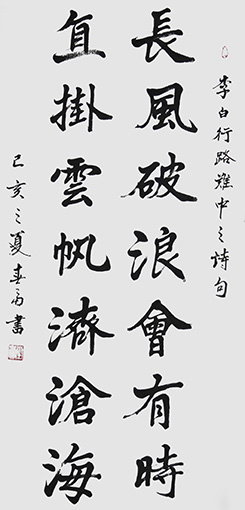 李白行路難中之詩句
長風破浪會有時
直掛雲帆濟滄海
己亥之夏春雨書